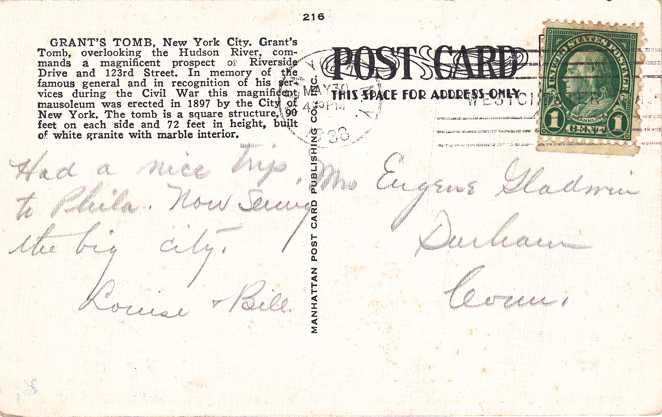 216
GRANT'S TOMB, New York City. Grant's
Tomb, overlooking the Hudson River, com-
mands a magnificent prospect of Riverside
Drive and 123rd Street. In memory of the
famous general and in recognition of his ser-
vices during the Civil War this magnificent
mausoleum was erected in 1897 by the City of
New York. The tomb is a square structure, 90
feet on each side and 72 feet in height, built
of white granite with marble interior.
Had a nice trip
to Phila. Now Seeing
the big city.
Louise & Bill.
MANHATTAN POST CARD PUBLISHING CO., INC.
POST CARD
THIS SPACE FOR ADDRESS ONLY
MAY 30
4 PM
38
UNITED STATES POSTAGE
1 CENT 1
Mrs Eugene Gladwin
Durham
Conn.